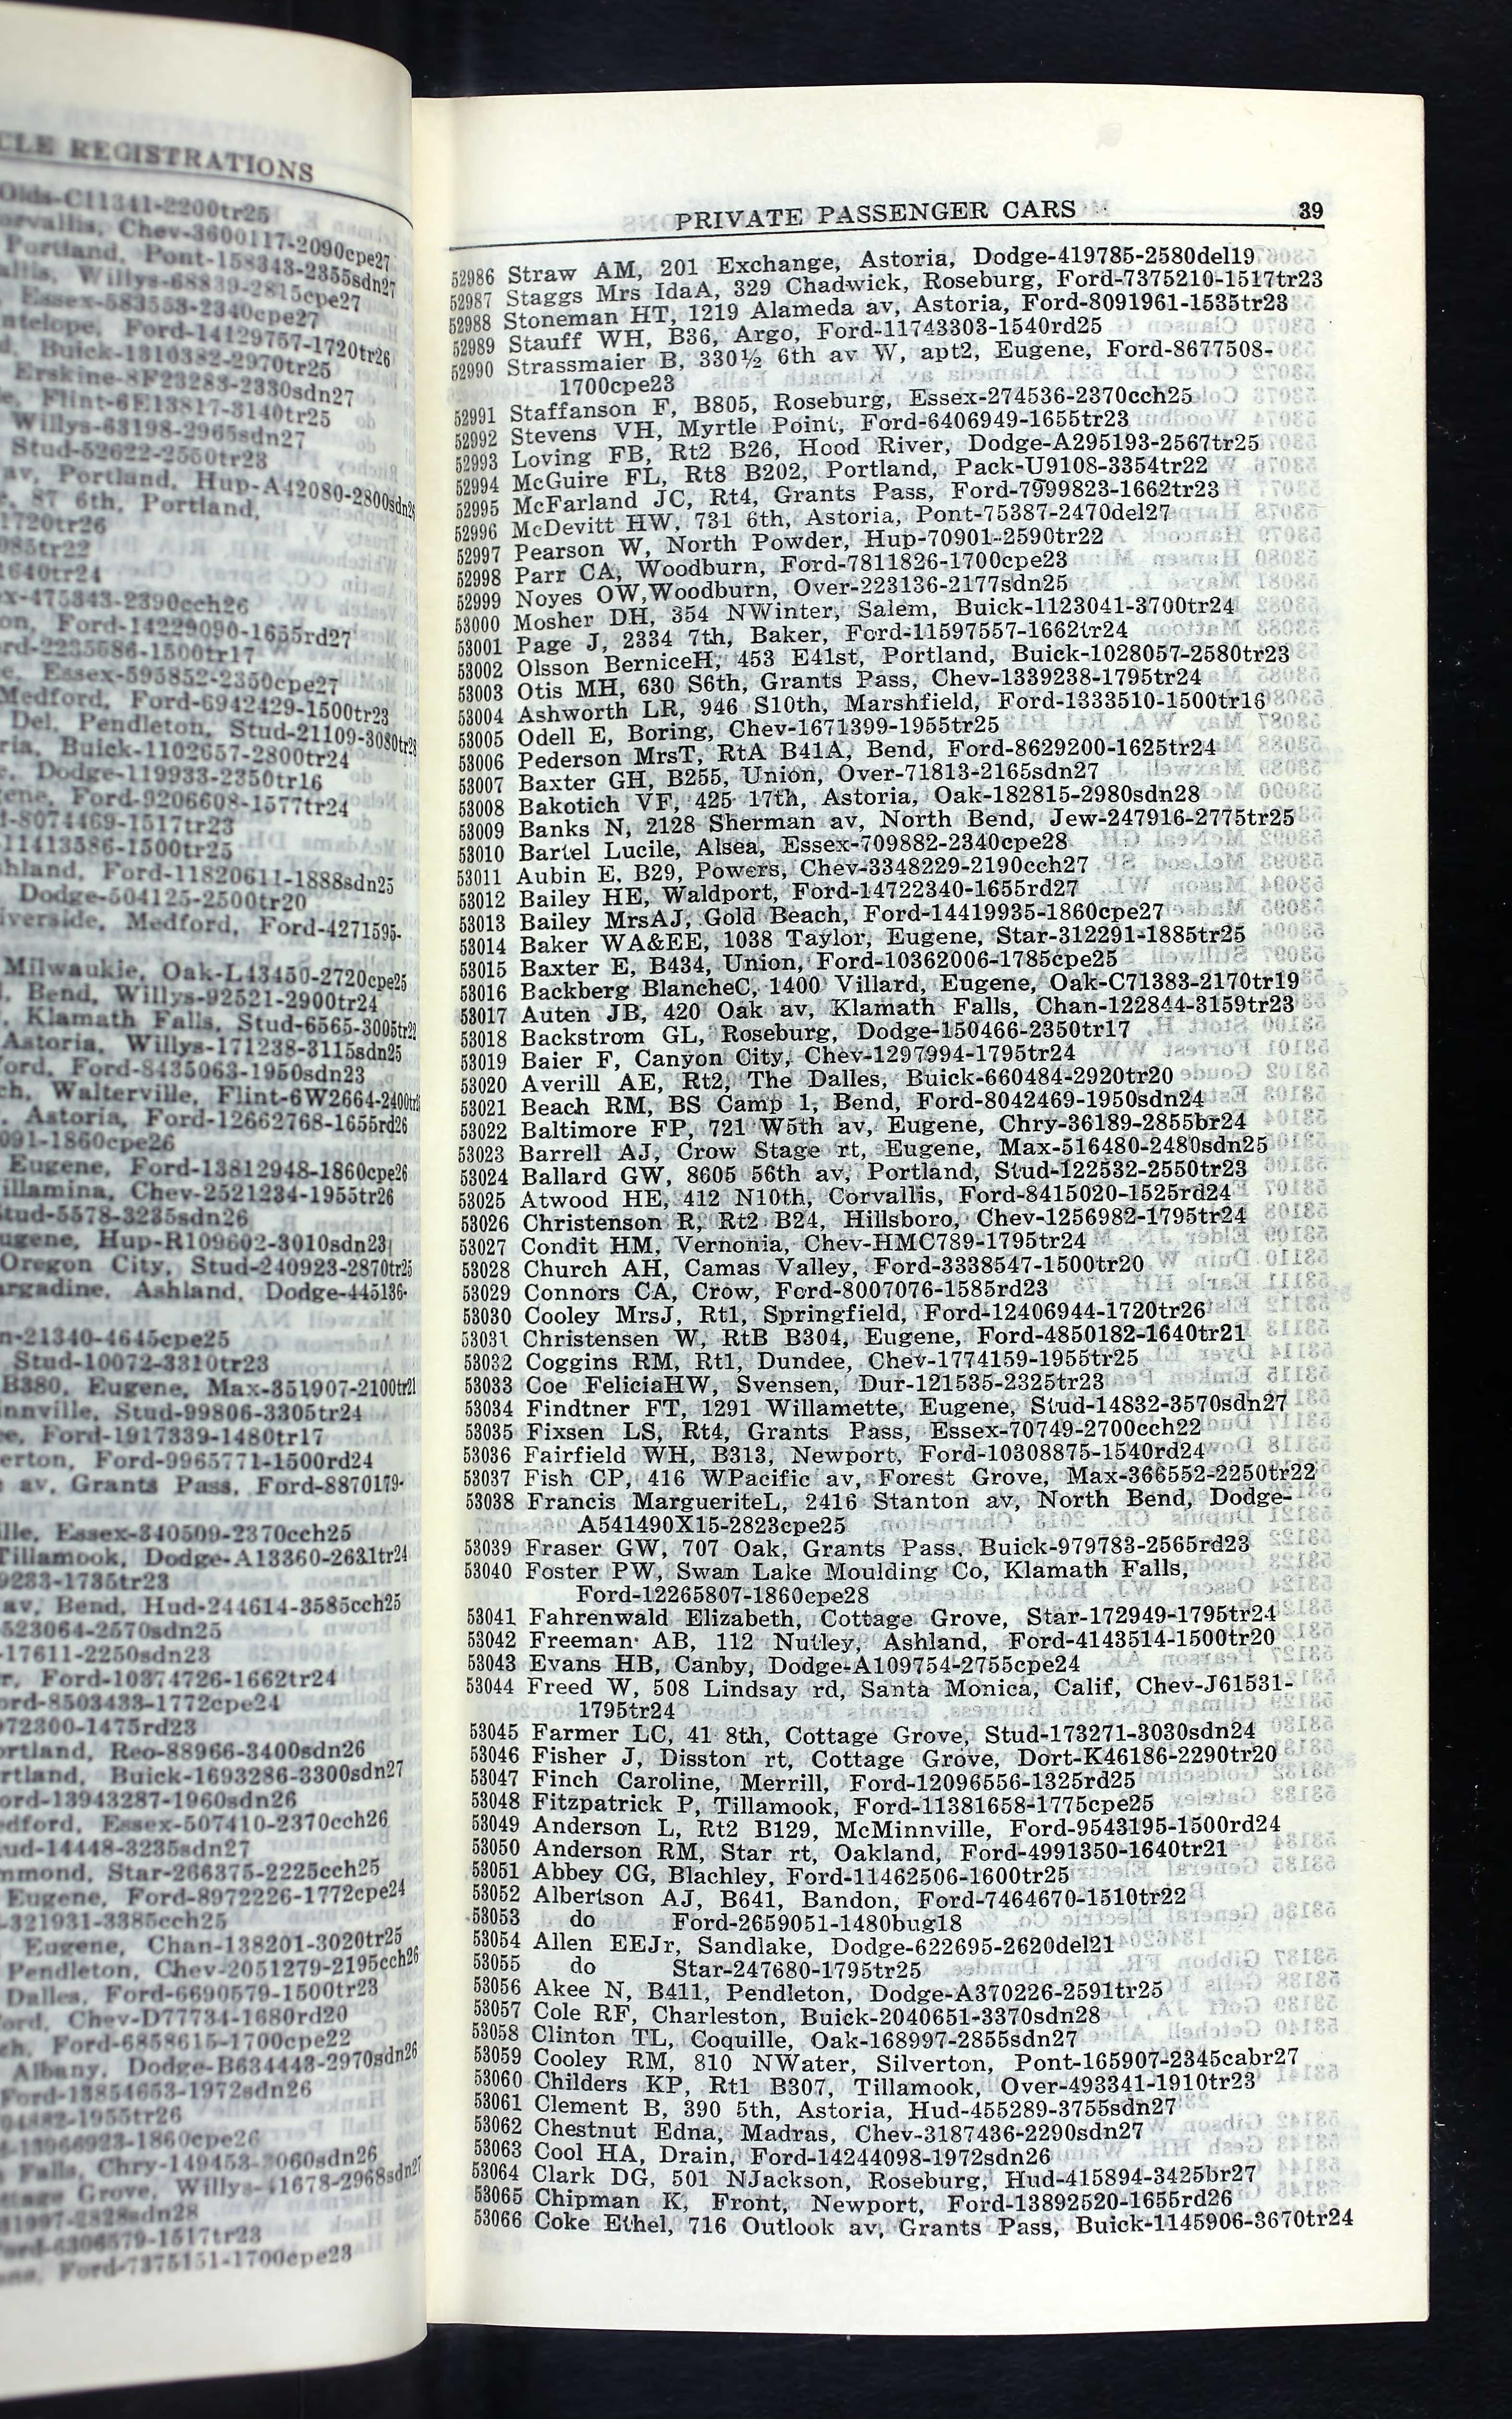 CLE REGISTRATIONS
Olds-C11341-2200tr25
orvallis, Chev-3600117-2090cpe27
Portland, Pont-158343-2355sdn27
Willys-68839-2815cpe27
Essex-583553-2340cpe27
Ford-14129757-1720tr26
Buick-1310382-2970tr25
Erskine-8F23283-2330sdn27
Flint-6E13817-3140tr25
Willys-63198-2965sdn27
Stud-52622-2550tr23
av, Portland, Hup-A42080-2800sdn
87 6th, Portland,
1720tr26
085tr22
1640tr24
x-475343-2390cch26
on, Ford-14229090-1655rd27
1500tr17
Essex-595852-2350cpe27
Medford, Ford-6942429-1500tr23
Del, Pendleton, Stud-21109-3080tr23
ria, Buick-1102657-2800tr24
Dodge-119933-2350tr16
Ford-9206608-1577tr24
1517tr23
1500tr25
hland, Ford-11820611-1888sdn25
Dodge-504125-2500tr20
iverside, Medford, Ford-4271595-
Milwaukie, Oak-L43450-2720cpe25
Bend, Willys-92521-2900tr24
Klamath Falls, Stud-6565-3005tr22
Astoria, Willys-171238-3115sdn25
1950sdn23
ch, Walterville, Flint-6W2664-2400
Astoria, Ford-12662768-1655rd26
091-1860cpe26
Eugene, Ford-13812948-1860cpe26
illamina, Chev-2521234-1955tr26
tud-5578-3235sdn26
ugene, Hup-R109602-3010sdn23
Oregon City, Stud-240923-2870tr25
argadine, Ashland, Dodge-445136-
n-21340-4645cpe25
Stud-10072-3310tr23
B380, Eugene, Max-351907-2100tr21
nnville, Stud-99806-3305tr24
Ford-1917339-1480tr17
erton, Ford-9965771-1500rd24
av, Grants Pass, Ford-8870179-
lle, Essex-340509-2370cch25
Tillamook, Dodge-A13360-2631tr24
9233-1735tr23
av, Bend, Hud-244614-3585cch25
523064-2570sdn25
-17611-2250sdn23
r, Ford-10374726-1662tr24
ord-8503433-1772cpe24
72300-1475rd23
ortland, Reo-88966-3400sdn26
rtland, Buick-1693286-3300sdn27
ord-13943287-1960sdn26
edford, Essex-507410-2370cch26
ud-14448-3235sdn27
mmond, Star-266375-2225cch25
Eugene, Ford-8972226-1772cpe24
-321931-3385cch25
Eugene, Chan-138201-3020tr25
Pendleton, Chev-2051279-2195cch26
Dalles, Ford-6690579-1500tr23
ord, Chev-D77734-1680rd20
ch, Ford-6858615-1700cpe22
Albany, Dodge-B634443-2970sdn26
Ford-13854653-1972sdn26
1955tr26
1860cpe26
Falls, Chry-149453-
Grove, Willys-
1517tr23
Ford-7375151-1700cpe23
PRIVATE PASSENGER CARS 39
52986 Straw AM, 201 Exchange, Astoria, Dodge-419785-2580del19
52987 Staggs Mrs IdaA, 329 Chadwick, Roseburg, Ford-7375210-1517tr23
52988 Stoneman HT, 1219 Alameda av, Astoria, Ford-8091961-1535tr23
52989 Stauff WH, B36, Argo, Ford-11743303-1540rd25
52990 Strassmaier B, 330½ 6th av W, apt2, Eugene, Ford-8677508-
1700cpe23
52991 Staffanson F, B805, Roseburg, Essex-274536-2370cch25
52992 Stevens VH, Myrtle Point, Ford-6406949-1655tr23
52993 Loving FB, Rt2 B26, Hood River, Dodge-A295193-2567tr25
52994 McGuire FL, Rt8 B202, Portland, Pack-U9108-3354tr22
52995 McFarland JC, Rt4, Grants Pass, Ford-7999823-1662tr23
52996 McDevitt HW, 731 6th, Astoria, Pont-75387-2470del27
52997 Pearson W, North Powder, Hup-70901-2590tr22
52998 Parr CA, Woodburn, Ford-7811826-1700cpe23
52999 Noyes OW,Woodburn, Over-223136-2177sdn25
53000 Mosher DH, 354 NWinter, Salem, Buick-1123041-3700tr24
53001 Page J, 2334 7th, Baker, Ford-11597557-1662tr24
53002 Olsson BerniceH, 453 E41st, Portland, Buick-1028057-2580tr23
53003 Otis MH, 630 S6th, Grants Pass, Chev-1339238-1795tr24
53004 Ashworth LR, 946 S10th, Marshfield, Ford-1333510-1500tr16
53005 Odell E, Boring, Chev-1671399-1955tr25
53006 Pederson MrsT, RtA B41A, Bend, Ford-8629200-1625tr24
53007 Baxter GH, B255, Union, Over-71813-2165sdn27
53008 Bakotich VF, 425 17th, Astoria, Oak-182815-2980sdn28
53009 Banks N, 2128 Sherman av, North Bend, Jew-247916-2775tr25
53010 Bartel Lucile, Alsea, Essex-709882-2340cpe28
53011 Aubin E, B29, Powers, Chev-3348229-2190cch27
53012 Bailey HE, Waldport, Ford-14722340-1655rd27
53013 Bailey MrsAJ, Gold Beach, Ford-14419935-1860cpe27
53014 Baker WA&EE, 1038 Taylor, Eugene, Star-312291-1885tr25
53015 Baxter E, B434, Union, Ford-10362006-1785cpe25
53016 Backberg BlancheC, 1400 Villard, Eugene, Oak-C71383-2170tr19
53017 Auten JB, 420 Oak av, Klamath Falls, Chan-122844-3159tr23
53018 Backstrom GL, Roseburg, Dodge-150466-2350tr17
53019 Baier F, Canyon City, Chev-1297994-1795tr24
53020 Averill AE, Rt2, The Dalles, Buick-660484-2920tr20
53021 Beach RM, BS Camp 1, Bend, Ford-8042469-1950sdn24
53022 Baltimore FP, 721 W5th av, Eugene, Chry-36189-2855br24
53023 Barrell AJ, Crow Stage rt, Eugene, Max-516480-2480sdn25
53024 Ballard GW, 8605 56th av, Portland, Stud-122532-2550tr23
53025 Atwood HE, 412 N10th, Corvallis, Ford-8415020-1525rd24
53026 Christenson R, Rt2 B24, Hillsboro, Chev-1256982-1795tr24
53027 Condit HM, Vernonia, Chev-HMC789-1795tr24
53028 Church AH, Camas Valley, Ford-3338547-1500tr20
53029 Connors CA, Crow, Ford-8007076-1585rd23
53030 Cooley MrsJ, Rt1, Springfield, Ford-12406944-1720tr26
53031 Christensen W, RtB B304, Eugene, Ford-4850182-1640tr21
53032 Coggins RM, Rt1, Dundee, Chev-1774159-1955tr25
53033 Coe FeliciaHW, Svensen, Dur-121535-2325tr23
53034 Findtner FT, 1291 Willamette, Eugene, Stud-14832-3570sdn27
53035 Fixsen LS, Rt4, Grants Pass, Essex-70749-2700cch22
53036 Fairfield WH, B313, Newport, Ford-10308875-1540rd24
53037 Fish CP, 416 WPacific av, Forest Grove, Max-366552-2250tr22
53038 Francis MargueriteL, 2416 Stanton av, North Bend, Dodge-
A541490X15-2823cpe25
53039 Fraser GW, 707 Oak, Grants Pass, Buick-979783-2565rd23
53040 Foster PW, Swan Lake Moulding Co, Klamath Falls,
Ford-12265807-1860cpe28
53041 Fahrenwald Elizabeth, Cottage Grove, Star-172949-1795tr24
53042 Freeman AB, 112 Nutley, Ashland, Ford-4143514-1500tr20
53043 Evans HB, Canby, Dodge-A109754-2755cpe24
53044 Freed W, 508 Lindsay rd, Santa Monica, Calif, Chev-J61531-
1795tr24
53045 Farmer LC, 41 8th, Cottage Grove, Stud-173271-3030sdn24
53046 Fisher J, Disston rt, Cottage Grove, Dort-K46186-2290tr20
53047 Finch Caroline, Merrill, Ford-12096556-1325rd25
53048 Fitzpatrick P, Tillamook, Ford-11381658-1775cpe25
53049 Anderson L, Rt2 B129, McMinnville, Ford-9543195-1500rd24
53050 Anderson RM, Star rt, Oakland, Ford-4991350-1640tr21
53051 Abbey CG, Blachley, Ford-11462506-1600tr25
53052 Albertson AJ, B641, Bandon, Ford-7464670-1510tr22
53053 do Ford-2659051-1480bug18
53054 Allen EEJr, Sandlake, Dodge-622695-2620del21
53055 do Star-247680-1795tr25
53056 Akee N, B411, Pendleton, Dodge-A370226-2591tr25
53057 Cole RF, Charleston, Buick-2040651-3370sdn28
53058 Clinton TL, Coquille, Oak-168997-2855sdn27
53059 Cooley RM, 810 NWater, Silverton, Pont-165907-2345cabr27
53060 Childers KP, Rt1 B307, Tillamook, Over-493341-1910tr23
53061 Clement B, 390 5th, Astoria, Hud-455289-3755sdn27
53062 Chestnut Edna, Madras, Chev-3187436-2290sdn27
53063 Cool HA, Drain, Ford-14244098-1972sdn26
53064 Clark DG, 501 NJackson, Roseburg, Hud-415894-3425br27
53065 Chipman K, Front, Newport, Ford-13892520-1655rd26
53066 Coke Ethel, 716 Outlook av, Grants Pass, Buick-1145906-3670tr24